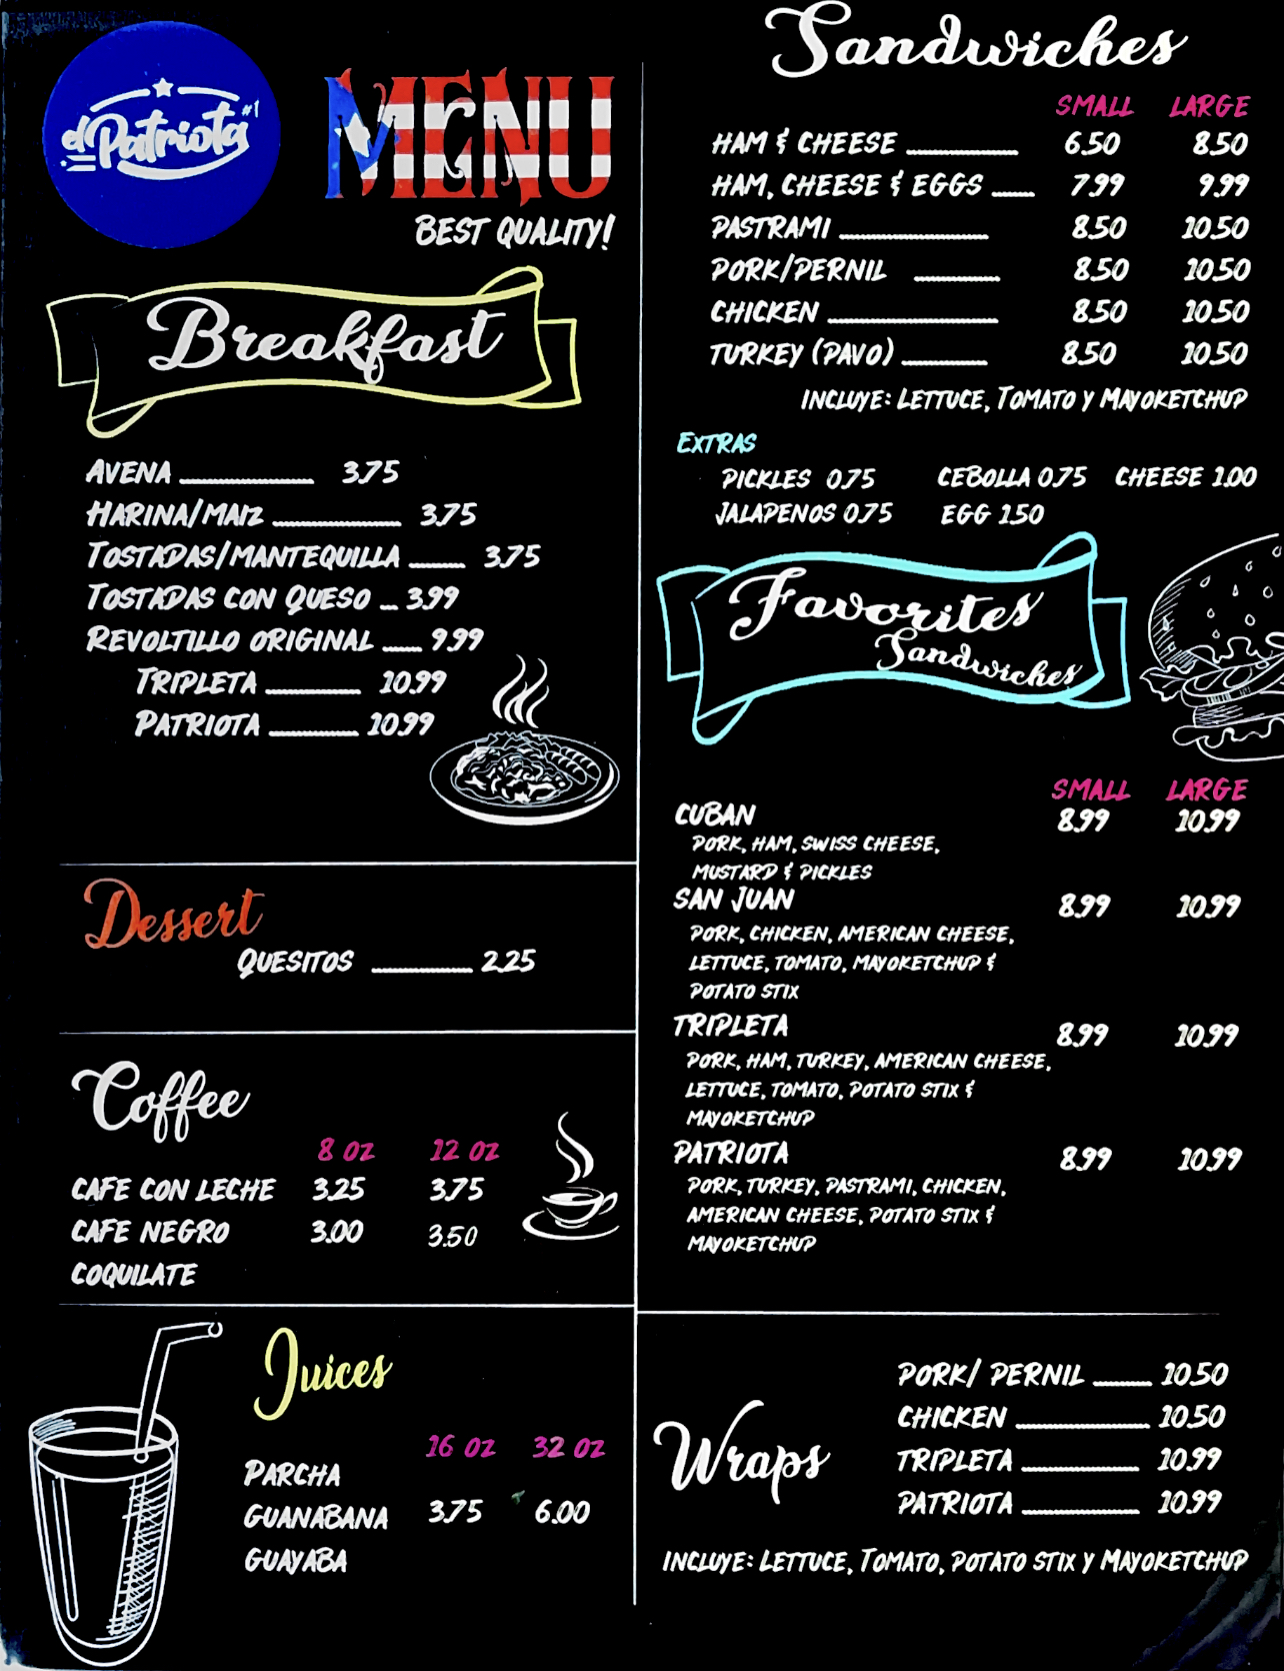 el Patriota #1
MENU
BEST QUALITY!
Breakfast
AVENA 3.75
HARINA/MAIZ 3.75
TOSTADAS/MANTEQUILLA 3.75
TOSTADAS CON QUESO 3.99
REVOLTILLO ORIGINAL 9.99
TRIPLETA 10.99
PATRIOTA 10.99
Dessert
QUESITOS 2.25
Coffee
8 OZ 12 OZ
CAFE CON LECHE 3.25 3.75
CAFE NEGRO 3.00 3.50
COQUILATE
Juices
16 OZ 32 OZ
PARCHA
GUANABANA 3.75 6.00
GUAYABA
Sandwiches
SMALL LARGE
HAM & CHEESE 6.50 8.50
HAM, CHEESE & EGGS 7.99 9.99
PASTRAMI 8.50 10.50
PORK/PERNIL 8.50 10.50
CHICKEN 8.50 10.50
TURKEY (PAVO) 8.50 10.50
INCLUYE: LETTUCE, TOMATO Y MAYOKETCHUP
EXTRAS
PICKLES 0.75 CEBOLLA 0.75 CHEESE 1.00
JALAPENOS 0.75 EGG 1.50
Favorites
Sandwiches
SMALL LARGE
CUBAN 8.99 10.99
PORK, HAM, SWISS CHEESE,
MUSTARD & PICKLES
SAN JUAN 8.99 10.99
PORK, CHICKEN, AMERICAN CHEESE,
LETTUCE, TOMATO, MAYOKETCHUP &
POTATO STIX
TRIPLETA 8.99 10.99
PORK, HAM, TURKEY, AMERICAN CHEESE,
LETTUCE, TOMATO, POTATO STIX &
MAYOKETCHUP
PATRIOTA 8.99 10.99
PORK, TURKEY, PASTRAMI, CHICKEN,
AMERICAN CHEESE, POTATO STIX &
MAYOKETCHUP
Wraps
PORK/ PERNIL 10.50
CHICKEN 10.50
TRIPLETA 10.99
PATRIOTA 10.99
INCLUYE: LETTUCE, TOMATO, POTATO STIX Y MAYOKETCHUP